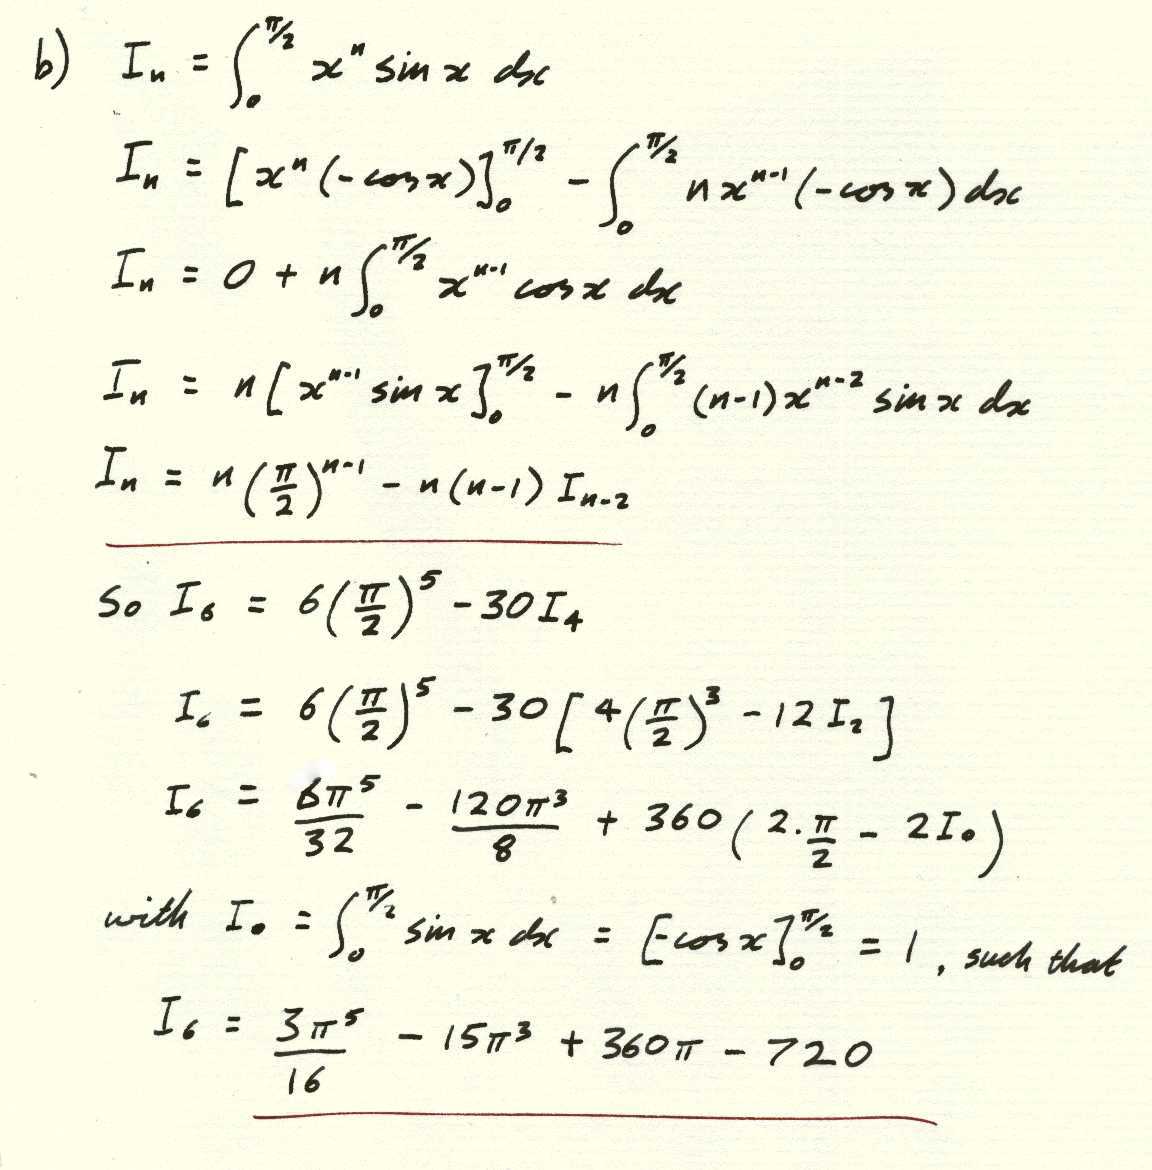 b) Iₙ = ∫₀^{π/2} xⁿ sin x dx
Iₙ = [xⁿ(-cos x)]₀^{π/2} - ∫₀^{π/2} n xⁿ⁻¹(-cos x) dx
Iₙ = 0 + n ∫₀^{π/2} xⁿ⁻¹ cos x dx
Iₙ = n [xⁿ⁻¹ sin x]₀^{π/2} - n ∫₀^{π/2} (n-1)xⁿ⁻² sin x dx
Iₙ = n (π/2)ⁿ⁻¹ - n(n-1) Iₙ₋₂
So I₆ = 6(π/2)⁵ - 30 I₄
I₆ = 6(π/2)⁵ - 30 [4(π/2)³ - 12 I₂]
I₆ = 6π⁵/32 - 120π³/8 + 360 (2.π/2 - 2I₀)
with I₀ = ∫₀^{π/2} sin x dx = [-cos x]₀^{π/2} = 1, such that
I₆ = 3π⁵/16 - 15π³ + 360π - 720